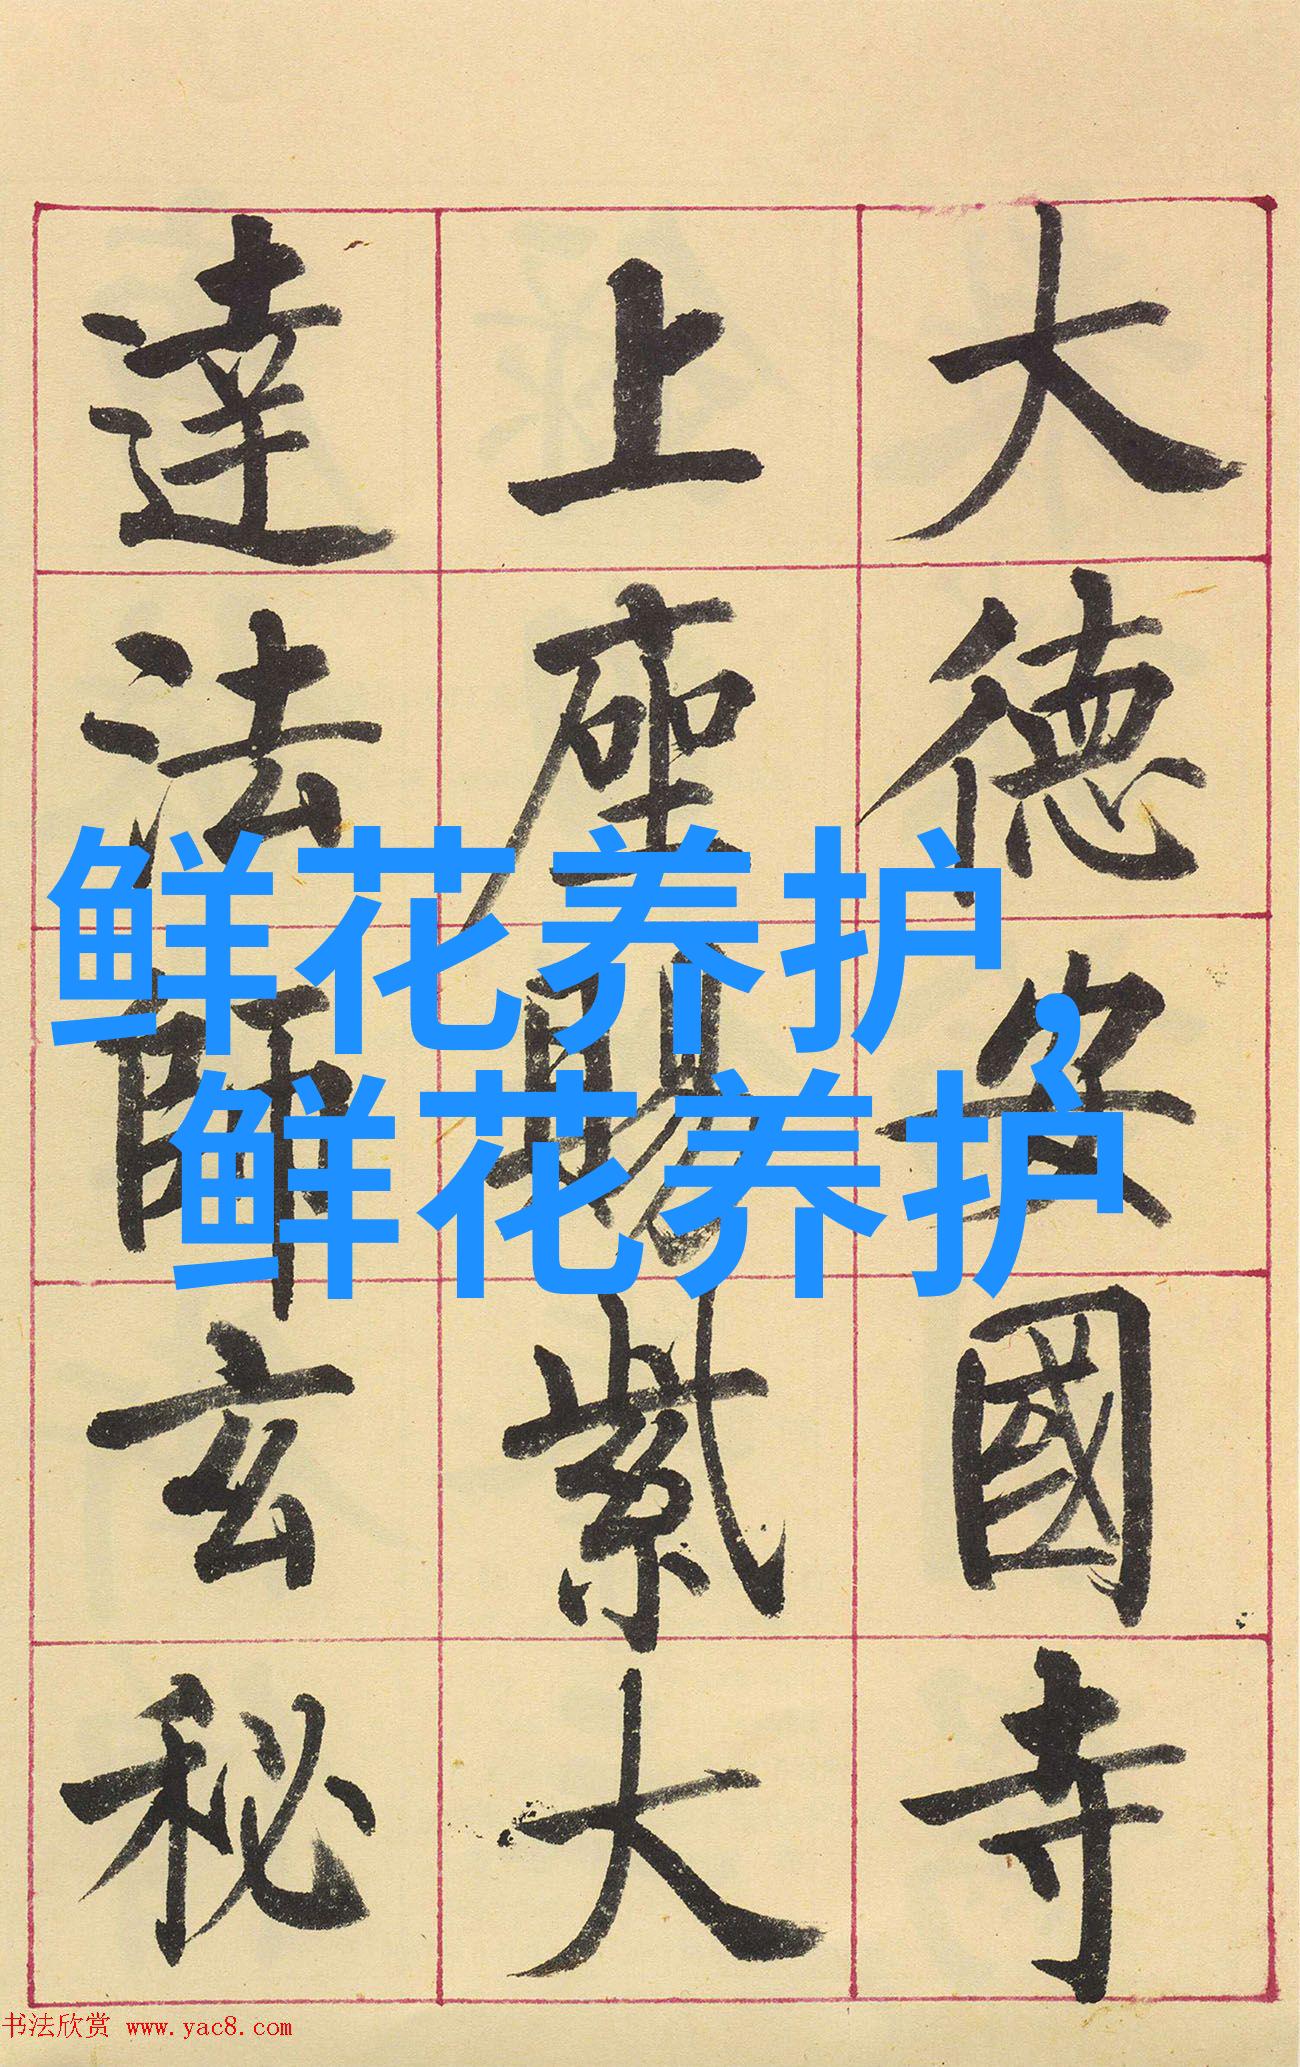 大德安國寺
上座賜紫大
達法師玄秘
鲜花养护,
鲜花养护
书法欣赏 www.yac8.com